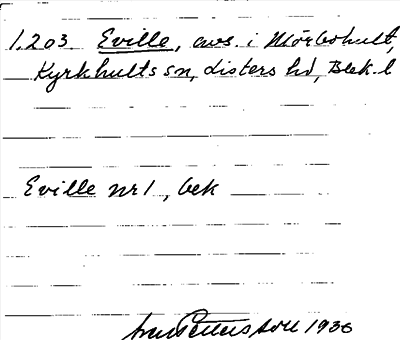 1.203 Eville, avs. i Mörbohult,
Kyrkhults sn, Listers hd, Blek. l
Eville nr 1, bek
Pettersson 1936